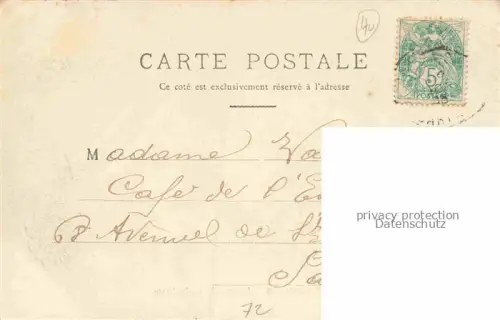 40
CARTE POSTALE
Ce coté est exclusivement réservé à l'adresse
5
Madame Va
Café de l'E
68 Avenue de St
privacy protection
Datenschutz
72